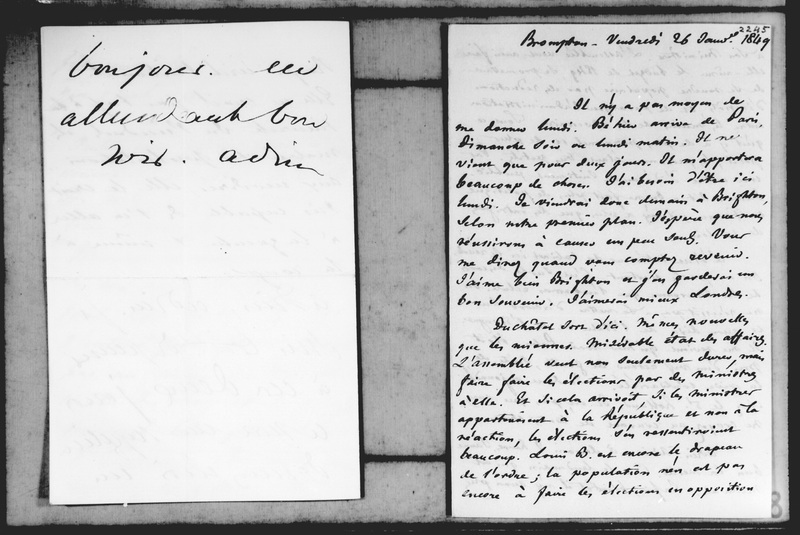 bonjour. en
attendant bon
soir. adieu
2245
Brompton - Vendredi 26 Janv. 1849
Il n'y a pas moyen de
me donner lundi. Béhier arrive de Paris,
Dimanche soir ou lundi matin. Il ne
vient que pour deux jours. Il m'apportera
beaucoup de choses. J'ai besoin d'être ici
lundi. Je viendrai donc demain à Brighton,
selon notre premier plan. J'espère que nous
réussirons à causer un peu seuls. Vous
me direz quand vous comptez revenir.
J'aime bien Brighton et j'en garderai un
bon souvenir. J'aimerai mieux Londres.
Duchâtel sort d'ici. Mêmes nouvelles
que les miennes. Misérable état des affaires.
L'assemblée veut non seulement durer, mais
faire faire les élections par des ministres
à elle. Et si cela arrivoit, si les ministres
appartenoient à la République et non à la
réaction, les élections s'en ressentiroient
beaucoup. Louis B. est encore le drapeau
de l'ordre ; la population n'en est pas
encore à faire les élections en opposition
8